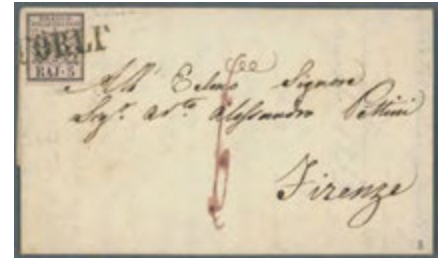 FRANCO
BAJ. 5
FORLI
All' Eccmo Signore
Sigr. Avto Alessandro Pettini
Firenze